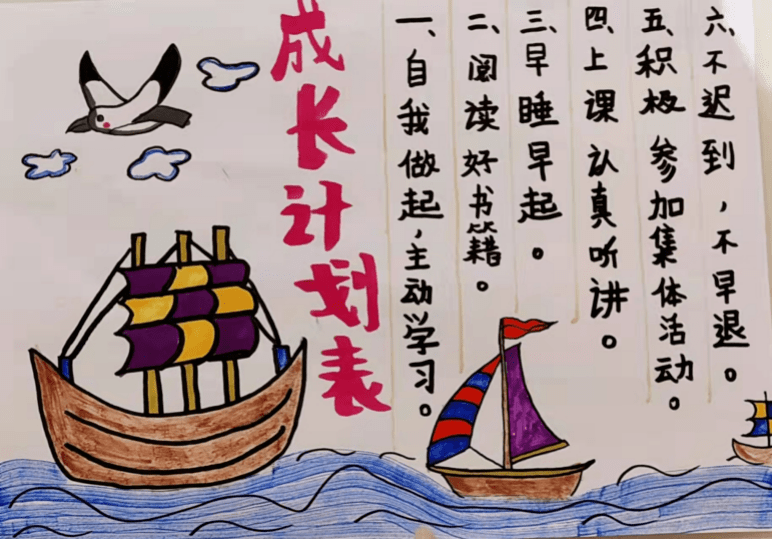 成长计划表
一、自我做起，主动学习。
二、阅读好书籍。
三、早睡早起。
四、上课认真听讲。
五、积极参加集体活动。
六、不迟到，不早退。